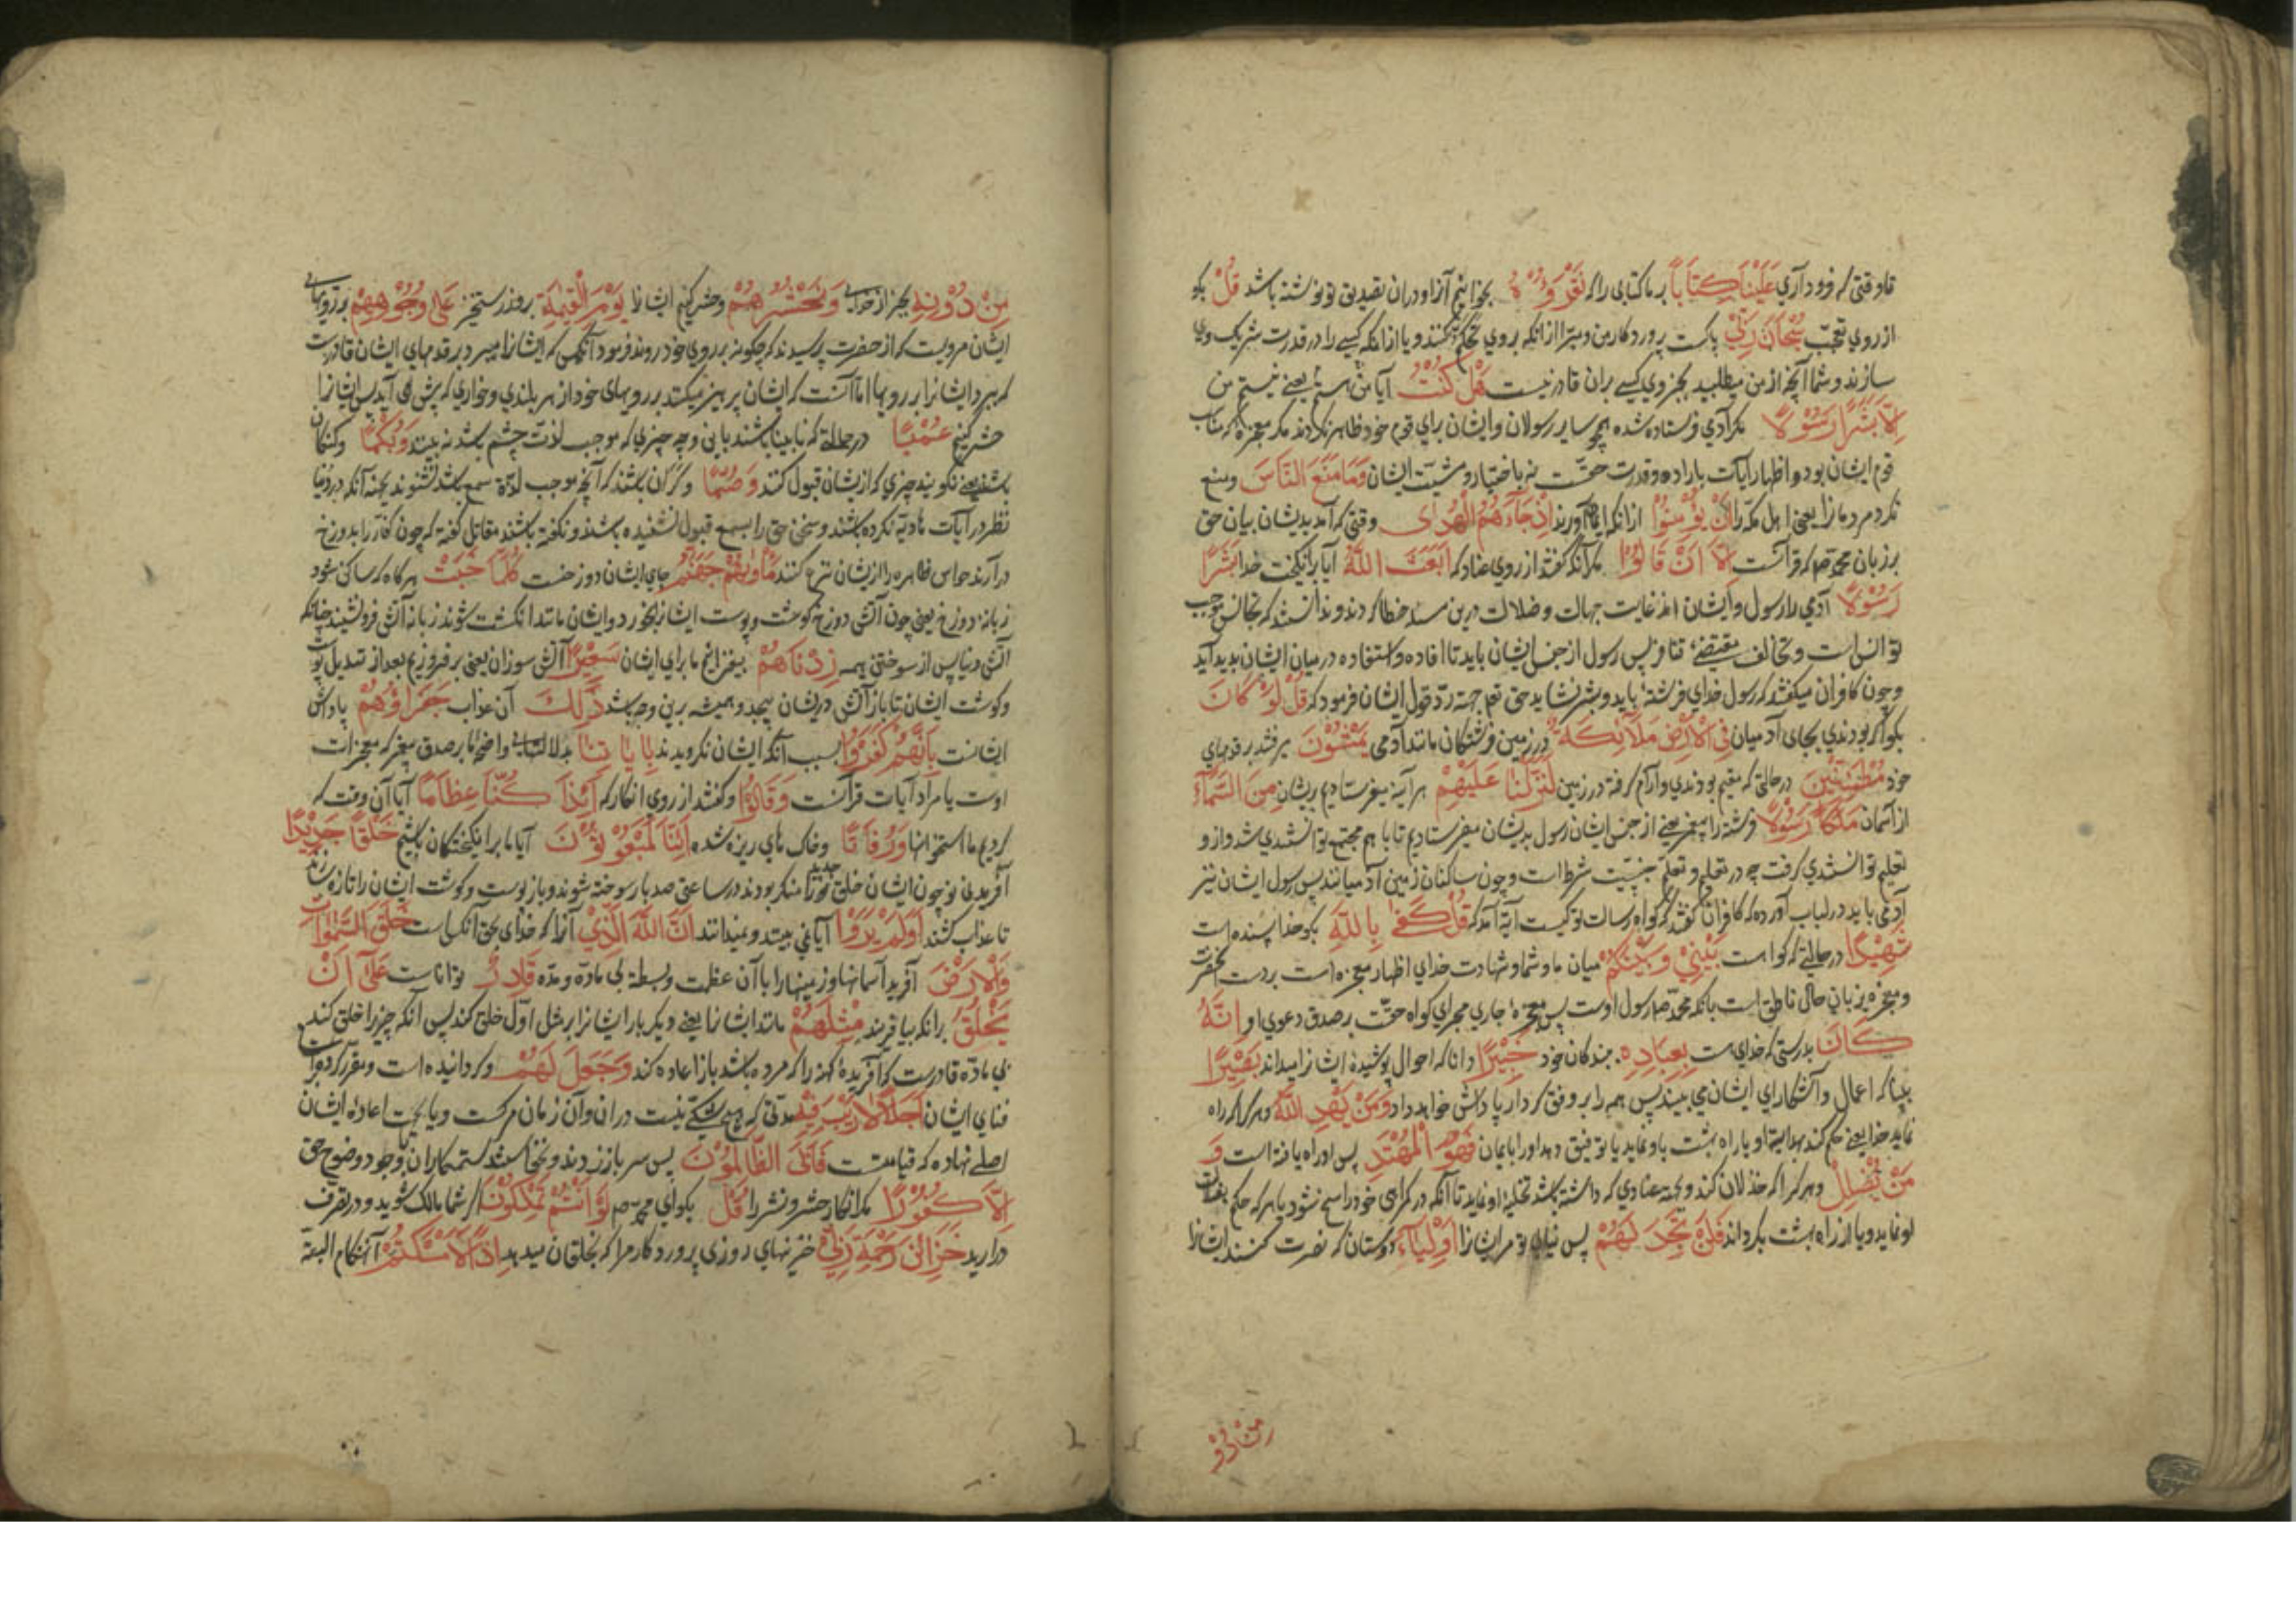 تا وقتی که فرود آری عَلَيْنَا كِتَابًا بر ما کتابی را که نَقْرَؤُهُ بخوانیم آنرا و در ان تصدیق تو نوشته باشد قُلْ بکو
از روی تعجب سُبْحَانَ رَبِّي پاکست پروردکار من و مبرا از انکه بر وی تحکم کنند و یا از انکه کسی را در قدرت شریک وی
سازند و شما آنچه از من میطلبید بجز وی کسی بران قادر نیست هَلْ كُنْتُ آیا من هستم یعنی نیستم من
اِلَّا بَشَرًا رَسُولًا مکر آدمی فرستاده شده همچو سایر رسولان و ایشان برای قوم خود ظاهر نکردند مکر معجزه که مناسب
قوم ایشان بود و اظهار آیات باراده و قدرت حقست نه باختیار و مشیت ایشان وَمَا مَنَعَ النَّاسَ و منع
نکرد مردمانرا یعنی اهل مکه را اَنْ يُؤْمِنُوْا از انکه ایمان آورند اِذْ جَاءَهُمُ الْهُدٰى وقتی که آمد بدیشان بیان حق
بر زبان محمد صم که قرآنست اِلَّا اَنْ قَالُوْا مکر آنکه کفتند از روی عناد که اَبَعَثَ اللهُ آیا برانکیخت خدا بَشَرًا
رَسُوْلًا آدمی را رسول و ایشان از غایت جهالت و ضلالت درین مسئله خطا کردند و ندانستند که تجانس موجب
توانس است و تخالف مقتضی تنافر پس رسول از جنس ایشان باید تا افاده و استفاده در میان ایشان بدید آید
و چون کافران میکفتند که رسول خدای فرشته باید و بشر نشاید حق تعم جهة رد قول ایشان فرمود که قُلْ لَوْ كَانَ
بکو اکر بودندی بجای آدمیان فِي الْاَرْضِ مَلَائِكَةٌ در زمین فرشتکان مانند آدمی يَمْشُوْنَ میرفتند بر قدمهای
خود مُطْمَئِنِّيْنَ در حالتی که مقیم بودندی و آرام کرفته در زمین لَنَزَّلْنَا عَلَيْهِمْ هر آینه میفرستادیم بریشان مِنَ السَّمَاءِ
از آسمان مَلَكًا رَسُوْلًا فرشته را پیغمبر یعنی از جنس ایشان رسول بدیشان میفرستادیم تا با هم مجتمع توانستندی شد و از و
تعلیم توانستندی کرفت چه در تعلیم و تعلم جنسیت شرط است و چون ساکنان زمین آدمیانند پس رسول ایشان نیز
آدمی باید در لباب آورده که کافران کفتند که کواه رسالت تو کیست آیة آمد که قُلْ كَفٰى بِاللّٰهِ بکو خدا پسنده است
شَهِيْدًا در حالتی که کواست بَيْنِيْ وَبَيْنَكُمْ میان ما و شما و شهادت خدای اظهار معجزه است بر دست آنحضرت
و معجزه بزبان حال ناطق است بانکه محمد صم رسول اوست پس معجزه جاری مجرای کواه حقست بر صدق دعوی او اِنَّهُ
كَانَ بدرستی که خدای هست بِعِبَادِهِ ببندکان خود خَبِيْرًا دانا که احوال پوشیده ایشانرا میداند بَصِيْرًا
بینا که اعمال و آشکارای ایشان می بیند پس همه را بر وفق کردار پاداش خواهد داد وَمَنْ يَهْدِ اللهُ و هر کرا که راه
نماید خدا یعنی حکم کند بهدایة او یا راه بهشت باو نماید یا توفیق دهد او را بایمان فَهُوَ الْمُهْتَدِ پس او راه یافته است وَ
مَنْ يُضْلِلْ و هر کرا که خذلان کند و بجهة عنادی که داشته باشد تخلیهٔ او نماید تا آنکه در کمراهی خود راسخ شود یا هر که حکم بضلالت
او نماید و یا از راه بهشت بکرداند فَلَنْ تَجِدَ لَهُمْ پس نیابی تو مر ایشانرا اَوْلِيَاءَ دوستان که نصرت کنند ایشانرا
من دو
مِنْ دُوْنِهِ بجز از خدای وَنَحْشُرُهُمْ و حشر کنیم ایشانرا يَوْمَ الْقِيٰمَةِ بروز رستخیز عَلٰى وُجُوْهِهِمْ بر رویهای
ایشان مرویست که از حضرت پرسیدند که چکونه بر روی خود روند فرمود آنکس که ایشانرا میبرد بر قدمهای ایشان قادرست
که ببرد ایشانرا بر رویها اما آنست که ایشان پرهیز میکنند بر رویهای خود از هر بلندی و خواری که پیش می آید پس ایشانرا
حشر کنیم عُمْيًا در حالتی که نابینا باشند باین وجه چیزی که موجب لذت چشم باشد نه بینند وَبُكْمًا و کنکان
باشند یعنی نکویند چیزی که از یشان قبول کنند وَصُمًّا و کران باشند که آنچه موجب لذة سمع باشد نشنوند بجهة آنکه در دنیا
نظر در آیات هادیه نکرده باشند و سخن حق را بسمع قبول نشنیده باشند و نکفته باشند مقاتل کفته که چون کفار را بدوزخ
درآرند حواس ظاهره را ازیشان نزع کنند مَأْوٰىهُمْ جَهَنَّمُ جای ایشان دوزخست كُلَّمَا خَبَتْ هر کاه که ساکن شود
زبانه دوزخ یعنی چون آتش دوزخ کوشت و پوست ایشانرا بخورد و ایشان مانند انکشت شوند زبانه آتش فرو نشیند چنانکه
آتش دنیا پس از سوختن هیمه زِدْنَاهُمْ بیفزائیم ما برای ایشان سَعِيْرًا آتش سوزان یعنی برفروزیم بعد از تبدیل پوست
و کوشت ایشان تا باز آتش دریشان پیچد و همیشه برین وجه باشد ذٰلِكَ آن عذاب جَزَاؤُهُمْ پاداش
ایشانست بِاَنَّهُمْ كَفَرُوْا بسبب آنکه ایشان نکرویدند بِاٰيَاتِنَا بدلالتهای واضح ما بر صدق پیغمبر که معجزات
اوست یا مراد آیات قرآنست وَقَالُوْا و کفتند از روی انکار که اَئِذَا كُنَّا عِظَامًا آیا آن وقت که
کردیم ما استخوانها وَرُفَاتًا و خاک های ریزه شده اَئِنَّا لَمَبْعُوْثُوْنَ آیا ما برانکیختکان باشیم خَلْقًا جَدِيْدًا
آفریدن نو چون ایشان خلق جدید را منکر بودند در ساعتی صد بار سوخته شوند و باز پوست و کوشت ایشان را تازه سازند
تا عذاب کشند اَوَلَمْ يَرَوْا آیا نمی بینند و نمیدانند اَنَّ اللهَ الَّذِيْ آنرا که خدای بحق آنکس است خَلَقَ السَّمٰوَاتِ
وَالْاَرْضَ آفرید آسمانها و زمینها را با آن عظمت و بسطة بی ماده و مده قَادِرٌ تواناست عَلٰى اَنْ
يَخْلُقَ برانکه بیافریند مِثْلَهُمْ مانند ایشانرا یعنی دیکر بار ایشانرا بر مثل اول خلق کند پس آنکه چیزیرا خلق کند
بی ماده قادرست که آفریده کهنه را که مرده باشد باز اعاده کند وَجَعَلَ لَهُمْ و کردانیده است و مقرر کرده است
فنای ایشان اَجَلًا لَا رَيْبَ فِيْهِ مدتی که هیچ شکی نیست دران و آن زمان مرکست و یا بجهت اعادهٔ ایشان
اجلی نهاده که قیامتست فَاَبَى الظَّالِمُوْنَ پس سر باز زدند و نخواستند ستمکاران با وجود وضوح حق
اِلَّا كُفُوْرًا مکر انکار حشر و نشر را قُلْ بکو ای محمد صم لَوْ اَنْتُمْ تَمْلِكُوْنَ اکر شما مالک شوید و در تصرف
درآرید خَزَائِنَ رَحْمَةِ رَبِّيْ خزینهای روزی پروردکار مرا که بخلقان میدهد اِذًا لَاَمْسَكْتُمْ آنهنکام البتة